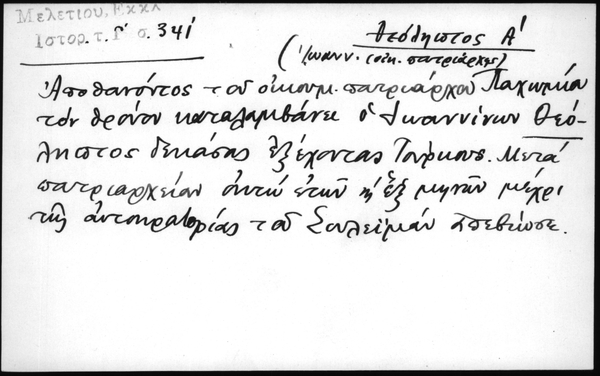 Μελετίου, Εκκλ
Ιστορ. τ. Γ' σ. 341
Θεόληπτος Α'
(Ἰωανν. οἰκ. πατριάρχης)
Ἀποθανόντος τοῦ οἰκουμ. πατριάρχου Παχωμίου
τόν θρόνον καταλαμβάνει ὁ Ἰωαννίνων Θεό-
ληπτος δεκάσας ἐξέχοντας Τούρκους. Μετά
πατριαρχείαν ὀκτώ ἐτῶν κ' ἕξ μηνῶν μέχρι
τῆς αὐτοκρατορίας τοῦ Σουλεϊμάν ἀπεβίωσε.